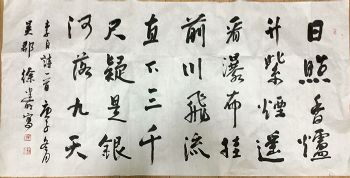 日照香爐
升紫煙遥
看瀑布挂
前川飛流
直下三千
尺疑是銀
河落九天
李白詩一首庚子
吴郡徐寫